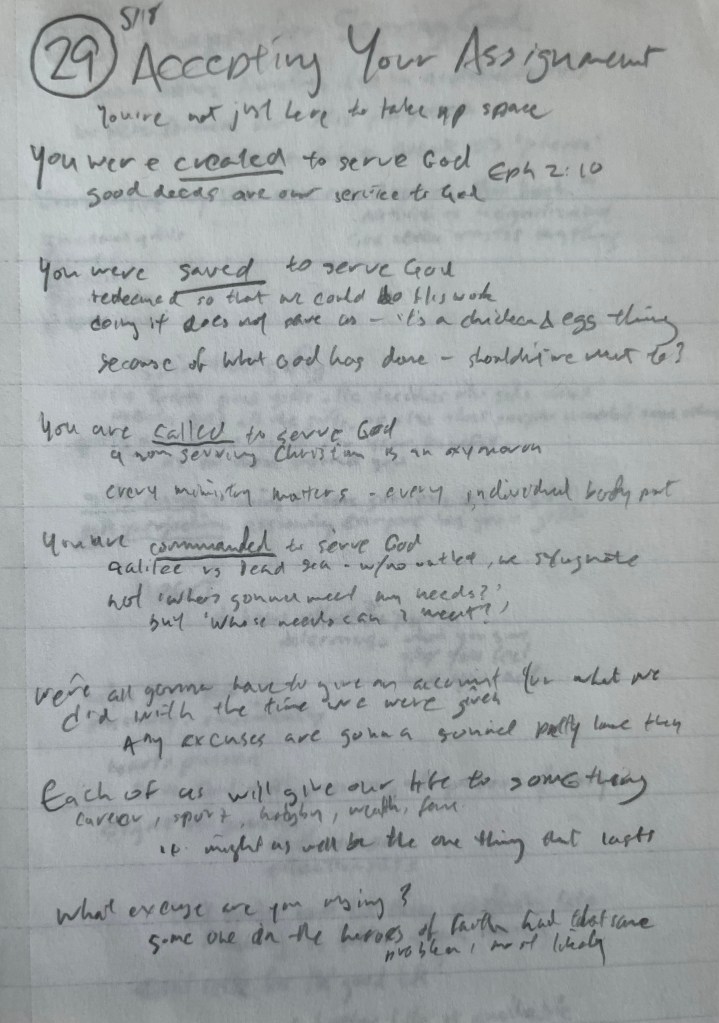 5/18
29 Accepting Your Assignment
You're not just here to take up space
You were created to serve God Eph 2:10
good deeds are our service to God
You were saved to serve God
redeemed so that we could do His work
doing it does not save us - it's a chicken & egg thing
because of what God has done - shouldn't we want to?
You are called to serve God
a non serving Christian is an oxymoron
every ministry matters - every individual body part
You are commanded to serve God
Galilee vs Dead Sea - w/no outlet, we stagnate
not 'who's gonna meet my needs?'
but 'whose needs can I meet?'
we're all gonna have to give an account for what we
did with the time we were given
Any excuses are gonna sound pretty lame then
Each of us will give our life to something
career, sport, hobby, wealth, fame
it might as well be the one thing that lasts
What excuse are you using?
some one in the heroes of faith had that same
problem, most likely